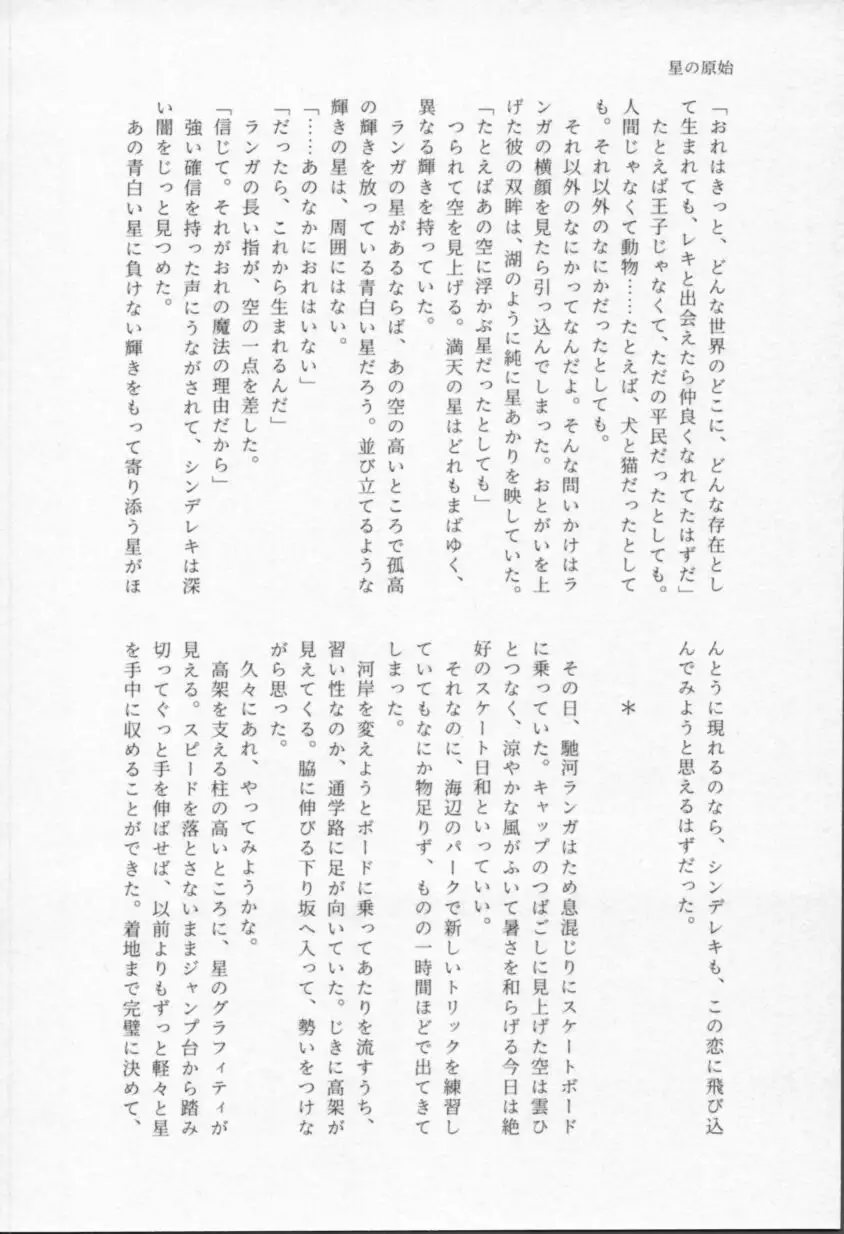 星の原始
「おれはきっと、どんな世界のどこに、どんな存在とし
て生まれても、レキと出会えたら仲良くなれてたはずだ」
たとえば王子じゃなくて、ただの平民だったとしても。
人間じゃなくて動物……たとえば、犬と猫だったとして
も。それ以外のなにかだったとしても。
それ以外のなにかってなんだよ。そんな問いかけはラ
ンガの横顔を見たら引っ込んでしまった。おとがいを上
げた彼の双眸は、湖のように純に星あかりを映していた。
「たとえばあの空に浮かぶ星だったとしても」
つられて空を見上げる。満天の星はどれもまばゆく、
異なる輝きを持っていた。
ランガの星があるならば、あの空の高いところで孤高
の輝きを放っている青白い星だろう。並び立てるような
輝きの星は、周囲にはない。
「……あのなかにおれはいない」
「だったら、これから生まれるんだ」
ランガの長い指が、空の一点を差した。
「信じて。それがおれの魔法の理由だから」
強い確信を持った声にうながされて、シンデレキは深
い闇をじっと見つめた。
あの青白い星に負けない輝きをもって寄り添う星がほ
んとうに現れるのなら、シンデレキも、この恋に飛び込
んでみようと思えるはずだった。
＊
その日、馳河ランガはため息混じりにスケートボード
に乗っていた。キャップのつばごしに見上げた空は雲ひ
とつなく、涼やかな風がふいて暑さを和らげる今日は絶
好のスケート日和といっていい。
それなのに、海辺のパークで新しいトリックを練習し
ていてもなにか物足りず、ものの一時間ほどで出てきて
しまった。
河岸を変えようとボードに乗ってあたりを流すうち、
習い性なのか、通学路に足が向いていた。じきに高架が
見えてくる。脇に伸びる下り坂へ入って、勢いをつけな
がら思った。
久々にあれ、やってみようかな。
高架を支える柱の高いところに、星のグラフィティが
見える。スピードを落とさないままジャンプ台から踏み
切ってぐっと手を伸ばせば、以前よりもずっと軽々と星
を手中に収めることができた。着地まで完璧に決めて、